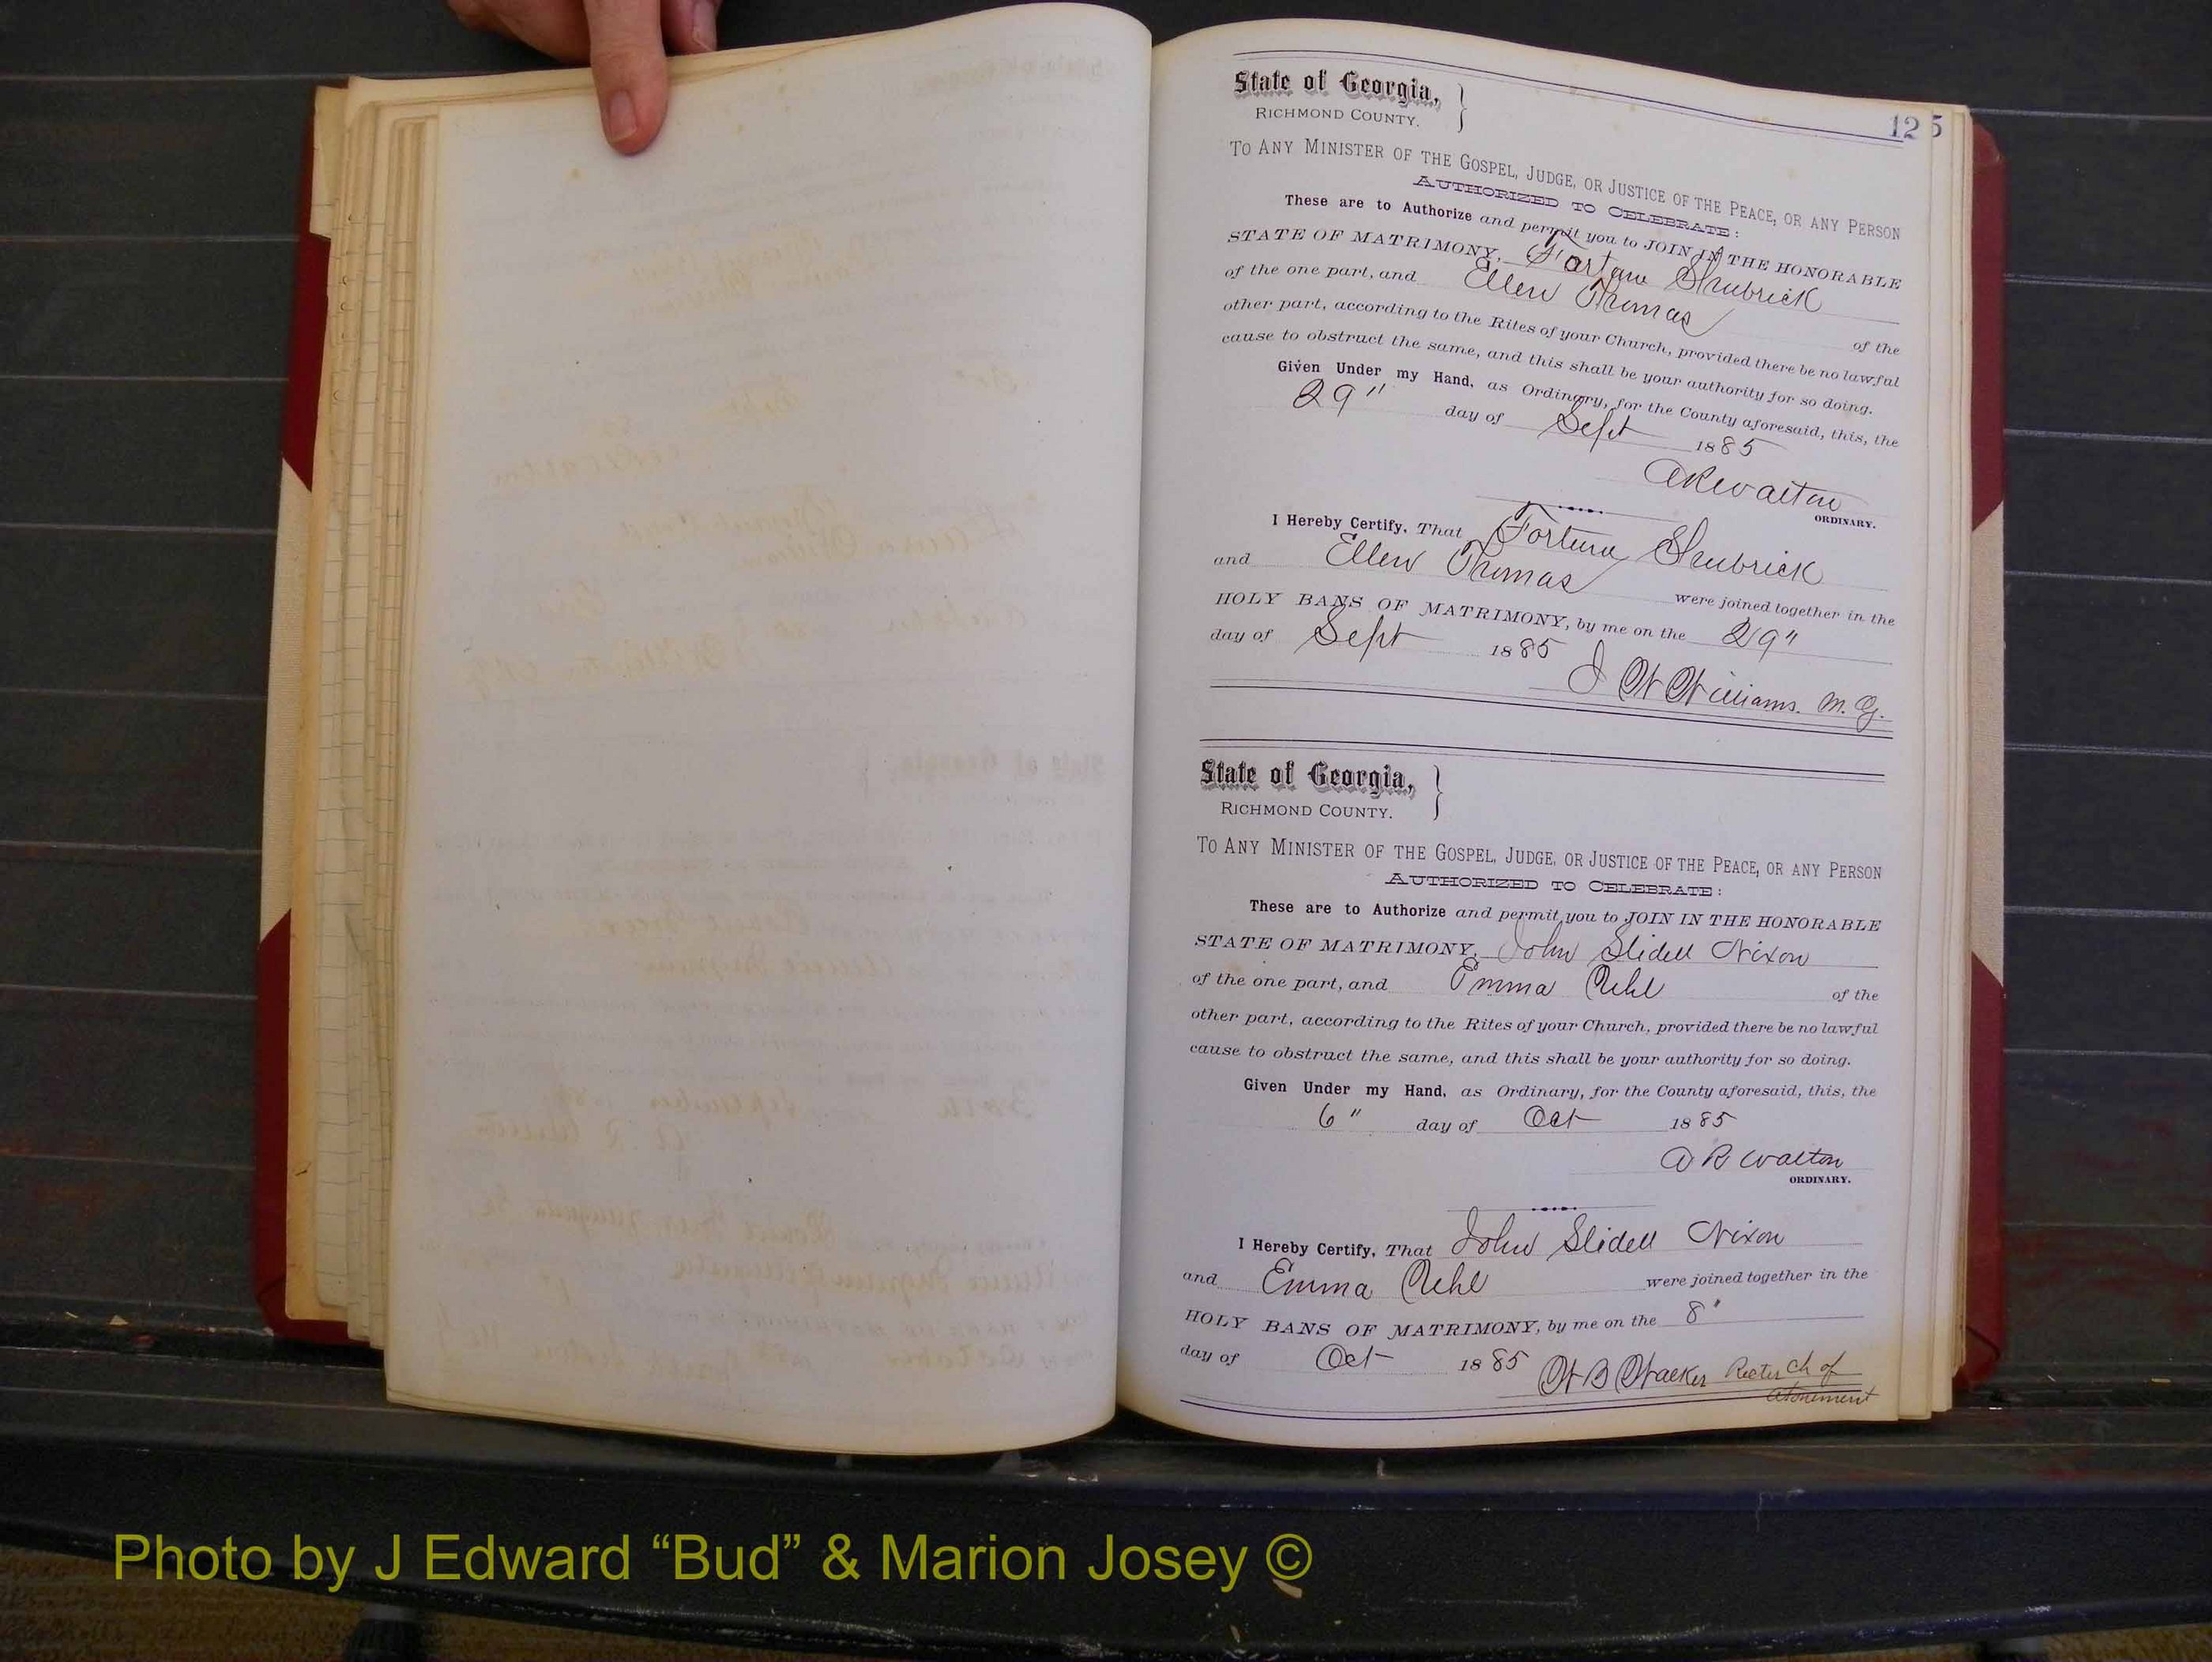 125
State of Georgia,
RICHMOND COUNTY.
TO ANY MINISTER OF THE GOSPEL, JUDGE, OR JUSTICE OF THE PEACE, OR ANY PERSON
AUTHORIZED TO CELEBRATE:
These are to Authorize and permit you to JOIN IN THE HONORABLE
STATE OF MATRIMONY, Fortune Shubrick
of the one part, and Ellen Thomas of the
other part, according to the Rites of your Church, provided there be no lawful
cause to obstruct the same, and this shall be your authority for so doing.
Given Under my Hand, as Ordinary, for the County aforesaid, this, the
29" day of Sept 1885
A R Walton
ORDINARY.
I Hereby Certify, That Fortune Shubrick
and Ellen Thomas were joined together in the
HOLY BANS OF MATRIMONY, by me on the 29"
day of Sept 1885
J W Williams. M. G.
State of Georgia,
RICHMOND COUNTY.
TO ANY MINISTER OF THE GOSPEL, JUDGE, OR JUSTICE OF THE PEACE, OR ANY PERSON
AUTHORIZED TO CELEBRATE:
These are to Authorize and permit you to JOIN IN THE HONORABLE
STATE OF MATRIMONY, John Slidell Nixon
of the one part, and Emma of the
other part, according to the Rites of your Church, provided there be no lawful
cause to obstruct the same, and this shall be your authority for so doing.
Given Under my Hand, as Ordinary, for the County aforesaid, this, the
6" day of Oct 1885
A R Walton
ORDINARY.
I Hereby Certify, That John Slidell Nixon
and Emma were joined together in the
HOLY BANS OF MATRIMONY, by me on the 8"
day of Oct 1885 W B Walker Rector Ch of
Atonement
Photo by J Edward “Bud” & Marion Josey ©